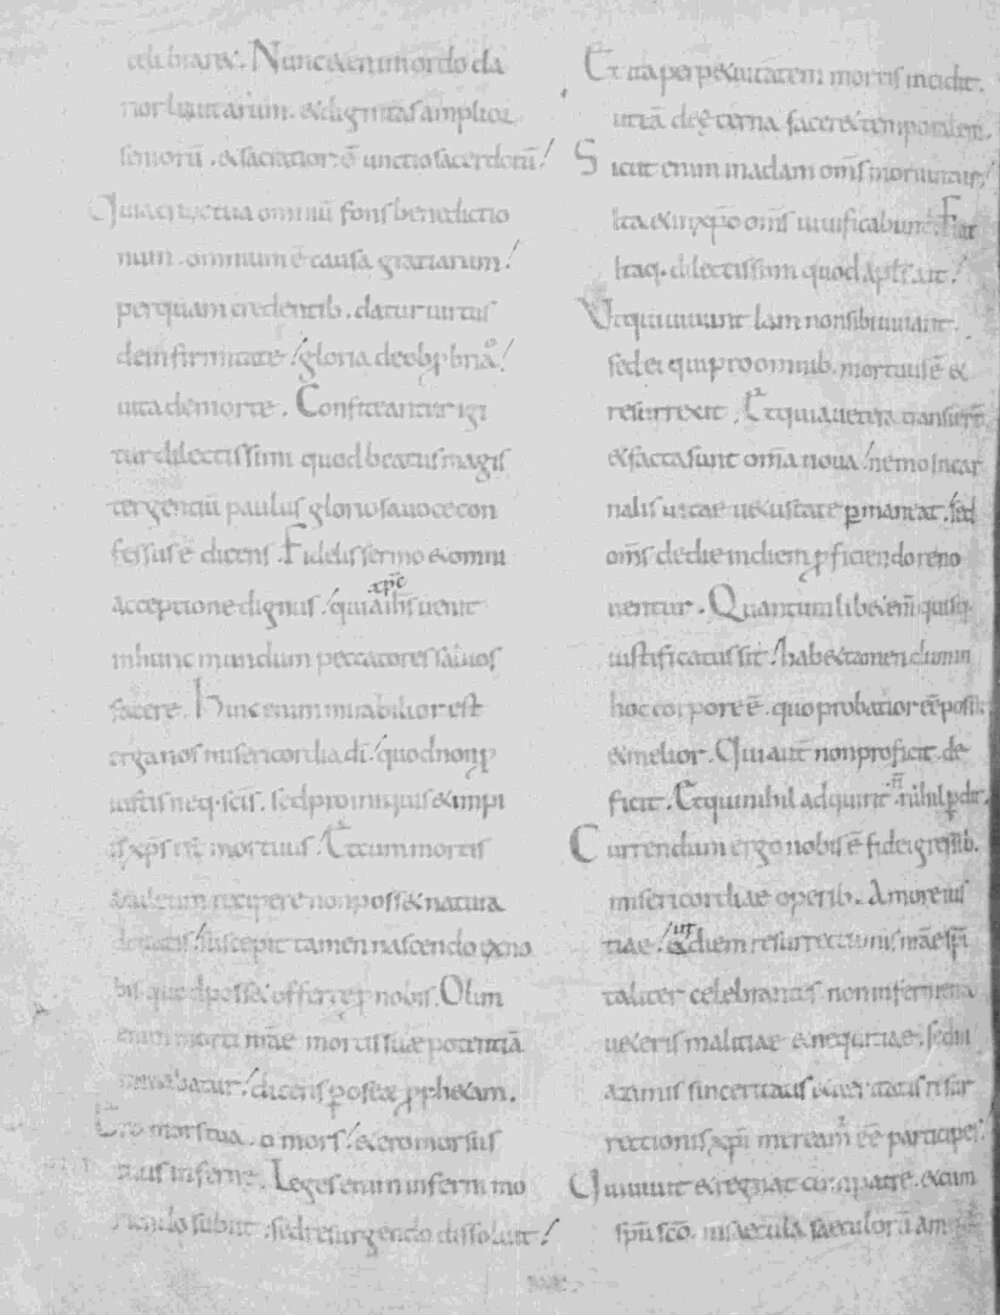 celebrare. Nunc et enim ordo cla
rior leuitarum. et dignitas amplior
seniorū. et sacratior ē unctio sacerdotū!
Quia crux tua omniū fons benedictio
num. omnium ē causa gratiarum!
per quam credentib. datur uirtus
de infirmitate! gloria de obprobrio!
uita de morte. Confiteantur igi
tur dilectissimi quod beatus magis
ter gentiū paulus gloriosa uoce con
fessus ē dicens. Fidelis sermo et omni
acceptione dignus! quia xp̄c ihs uenit
in hunc mundum peccatores saluos
facere. Hinc enim mirabilior est
erga nos misericordia dī! quod non p
iustis neq. scīs. sed pro iniquis et impi
is xp̄s mortuus! Et cum mortis
recipere non posset natura
suscepit tamen nascendo ex no
bis quod posset offerre p nobis. Olim
enim morti nr̄ae mortis suae potentiā
dicens p osee pphetam.
Ero mors tua o mors! et ero morsus
tuus inferne. Leges enim inferni mo
riendo subiit. sed resurgendo dissoluit!
Et ita perpetuitatem mortis incidit.
ut eā de ęterna faceret temporalem.
Sicut enim in adam om̄s moriuntur!
Ita et in xp̄o om̄s uiuificabunt. Fiat
Itaq. dilectissimi quod apls ait!
Ut qui uiuunt Iam non sibi uiuant.
sed ei qui pro omnib. mortuus ē et
resurrexit. Et quia uetera transierūt
et facta sunt om̄a noua! nemo In car
nalis uitae uetustate pmaneat. sed
om̄s de die in diem pficiendo reno
uentur. Quantum libet enī quisq.
iustificatus sit! habet tamen dum in
hoc corpore ē. quo probatior eē possit
et melior. Qui aut̄ non proficit. de
ficit. Et qui nihil adquirit. ñ nihil pdit.
Currendum ergo nobis ē fidei gressib.
misericordiae operib. Amore ius
titiae! ut diem resurrectionis nr̄ae spī
taliter celebrantes non in fermento
ueteris malitiae et nequitiae. sed in
azimis sinceritatis et ueritatis resur
rectionis xp̄i mereamr eē participes!
Qui uiuit et regnat cum patre. et cum
spū scō. in saecula saeculorū am